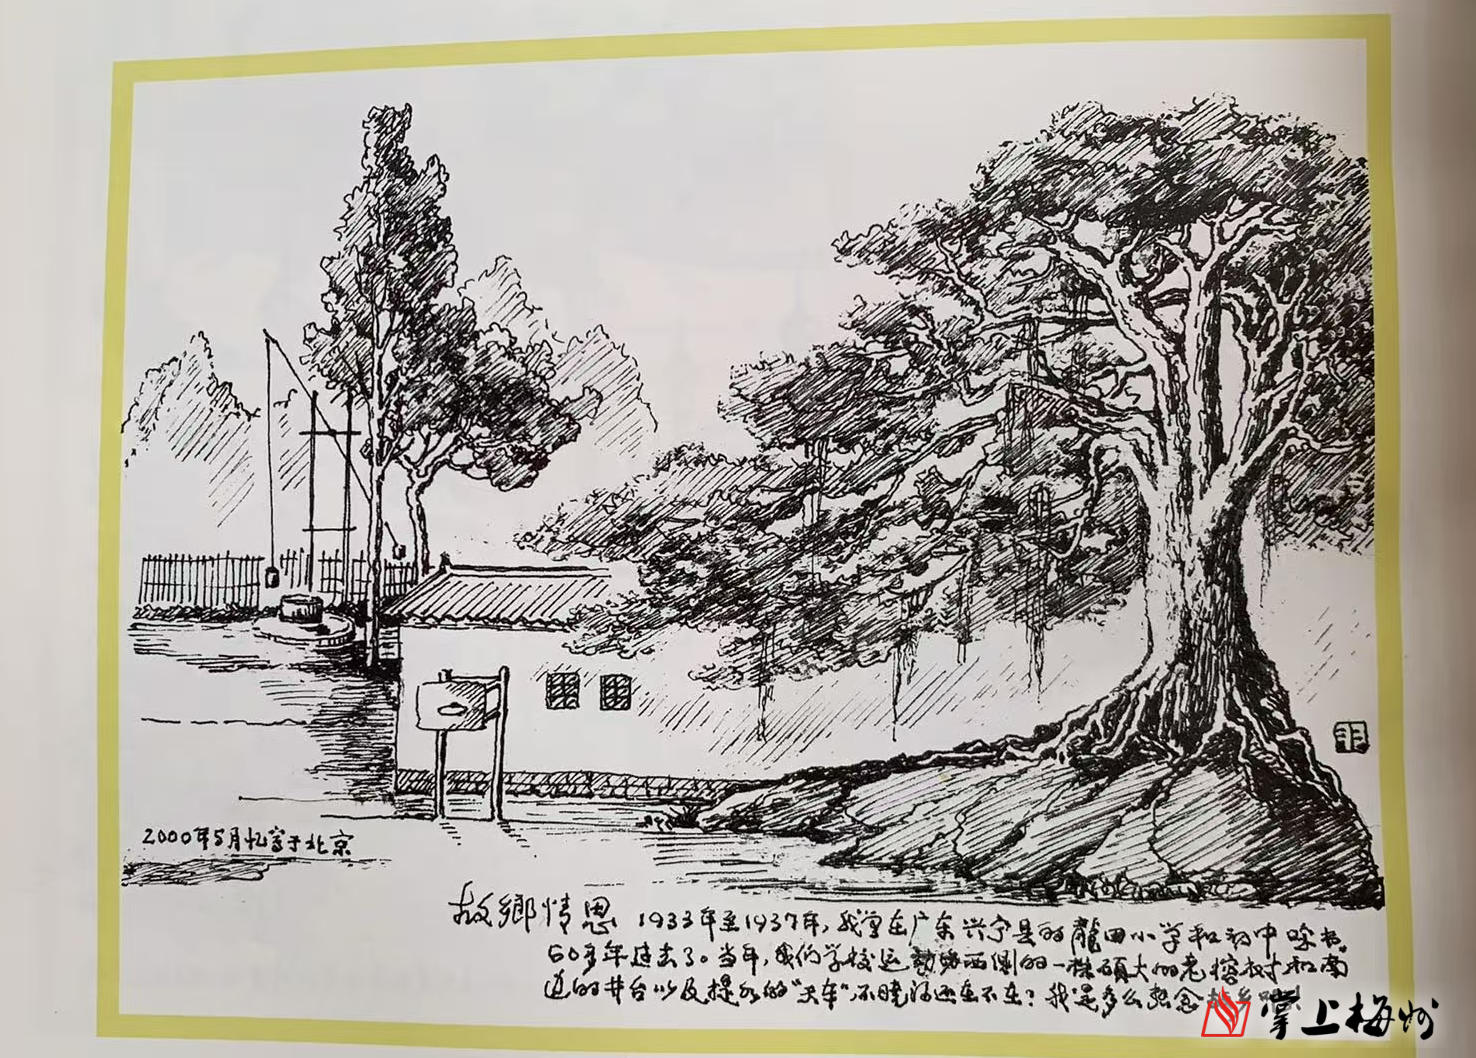 2000年5月忆写于北京
故鄉情思 1933年至1937年,我曾在广东兴宁县的龍田小学和初中唸书。
60多年过去了。当年,我们学校运動场西側的一株碩大的老榕树和南
边的井台以及提水的“天车”,不晓得还在不在?我是多么想念故乡
掌上梅州